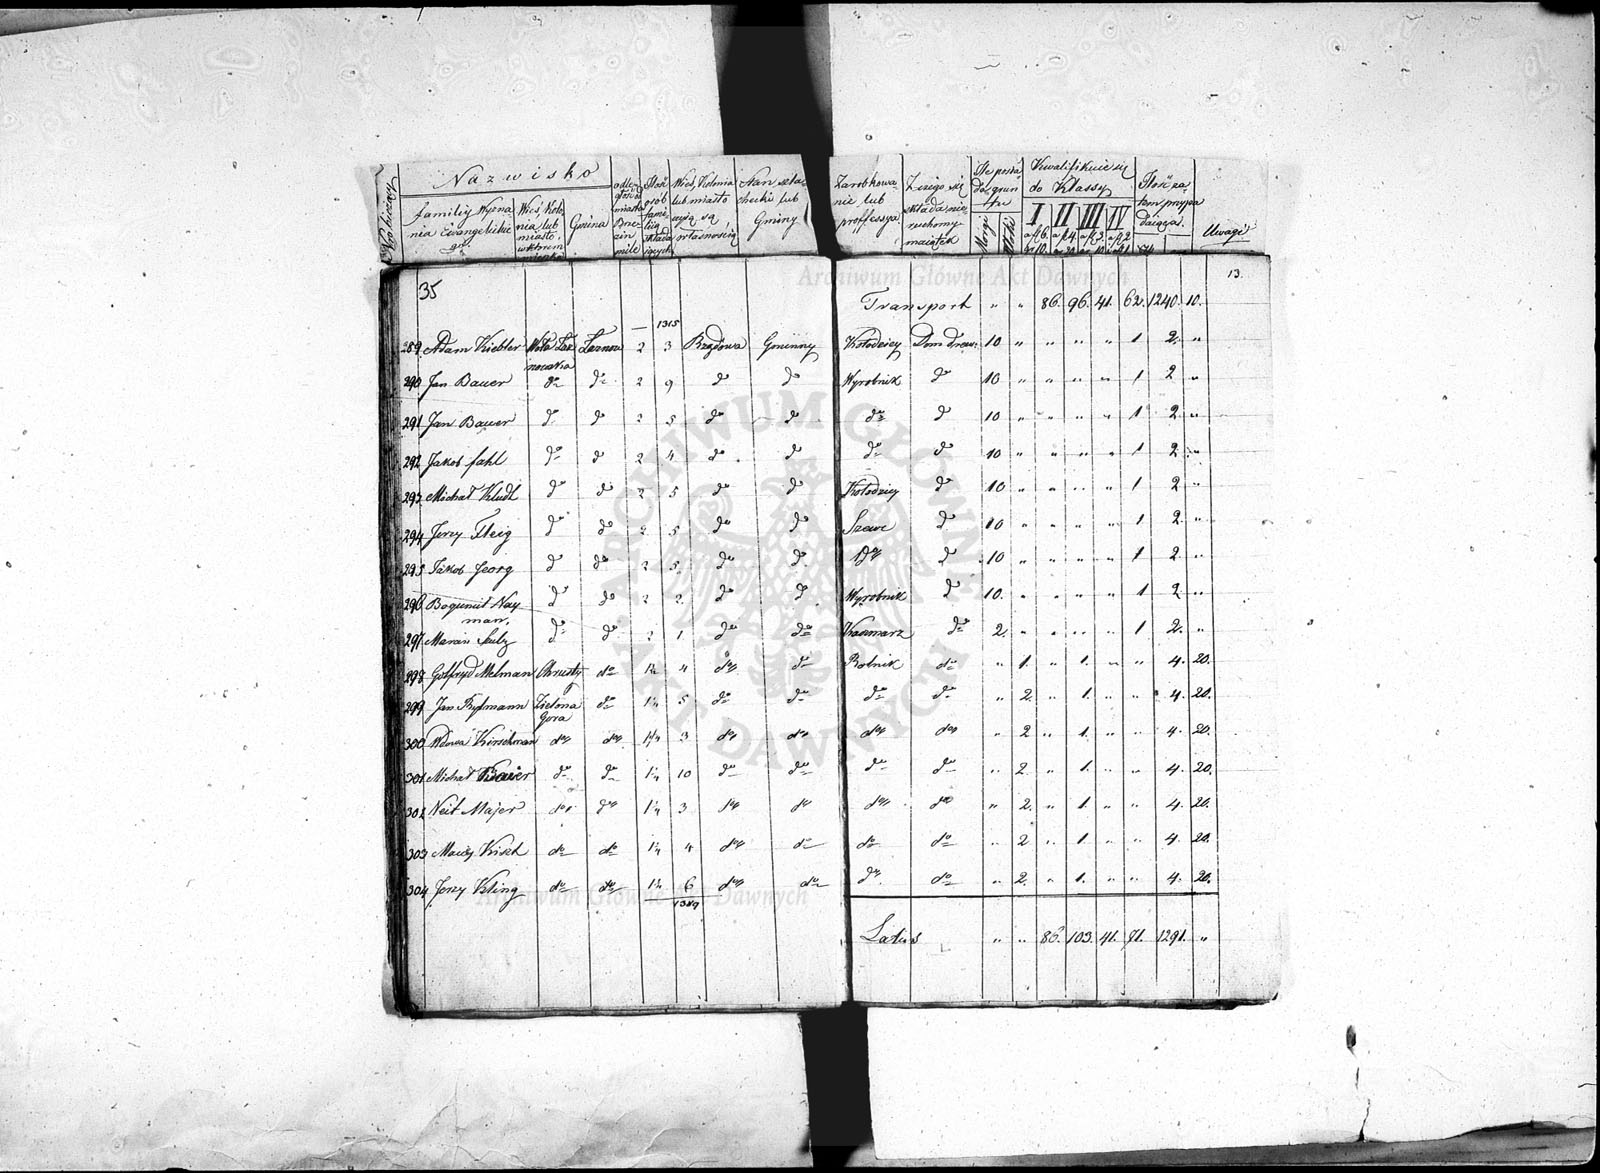 Nazwisko
familiy Wyzna
nia Ewangelickie
go
Wieś, Kolo
nia lub
miasto,
w którem
Gmina
odle
głość
miasta
Brze
zin
mile
Ilość
osob
fami
liię
składa
iących
Wieś, Kolonia
lub miasto
czyią są
własnością
Stan szla
checki lub
Gminy
Zarobkowa
nie lub
proffessya
Z czego się
składa nie
ruchomy
maiątek
Ile posia
da grun
tu
Morgi
Włóki
Kwalifikuie się
do Klassy
I II III IV
Ilość za
tem przypa
daiąca
Uwagi
Archiwum Główne Akt Dawnych
35
13.
Transport " " 86. 96. 41. 62. 1240. 10.
1315
289 Adam Kiebler Wola Łaz Łaznow 2 3 Rządowa Gminny Kołodziey Dom drew. 10 " " " " 1 2. "
nowska
290 Jan Bauer do do 2 9 do do Wyrobnik do 10 " " " " 1 2 "
291 Jan Bauer do do 2 5 do do do do 10 " " " " 1 2 "
292 Jakob Fahl do do 2 4 do do do do 10 " " " " 1 2 "
293 Michał Kludt do do 2 5 do do Kołodziey do 10 " " " " 1 2 "
294 Jerzy Fleig do do 2 5 do do Szewc do 10 " " " " 1 2 "
295 Jakob Georg do do 2 5 do do do do 10 " " " " 1 2 "
296 Bogumił Nay do do 2 2 do do Wyrobnik do 10 " " " " 1 2 "
man.
297 Marcin Szulz do do 2 1 do do Karczmarz do 2. " " " " 1 2. "
298 Gotfryd Melman Chrusty do 1½ 4 do do Rolnik do " 1. " 1. " " 4. 20.
299 Jan Rytmann Zielona do 1½ 5 do do do do " 2. " 1. " " 4. 20.
Gora
300 Wdowa Kirschman do do 1½ 3 do do do do " 2 " 1. " " 4. 20.
301 Michał Bauer do do 1½ 10 do do do do " 2 " 1. " " 4. 20.
302 Neit Majer do do 1½ 3 do do do do " 2. " 1. " " 4. 20.
303 Maciej Kisch do do 1½ 4 do do do do " 2 " 1. " " 4. 20.
304 Jerzy Kling do do 1½ 6 do do do do " 2. " 1. " " 4. 20.
1389
Archiwum Główne Akt Dawnych
Latus " " 86. 103. 41. 71. 1291. "
ARCHIWUM GŁÓWNE AKT DAWNYCH